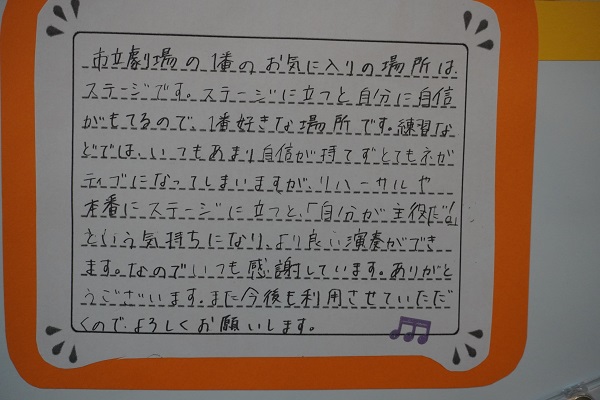 市立劇場の1番のお気に入りの場所は、
ステージです。ステージに立つと自分に自信
がもてるので、1番好きな場所です。練習な
どでは、いつもあまり自信が持てずとてもネガ
ティブになってしまいますが、リハーサルや
本番にステージに立つと、「自分が主役だ!」
という気持ちになり、より良い演奏ができ
ます。なのでいつも感謝しています。ありがと
うございます。また今後も利用させていただ
くので、よろしくお願いします。